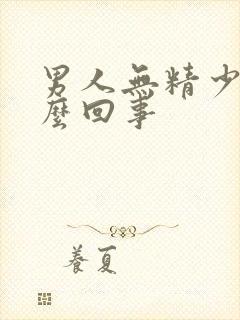 男人無精少
麼回事
養夏